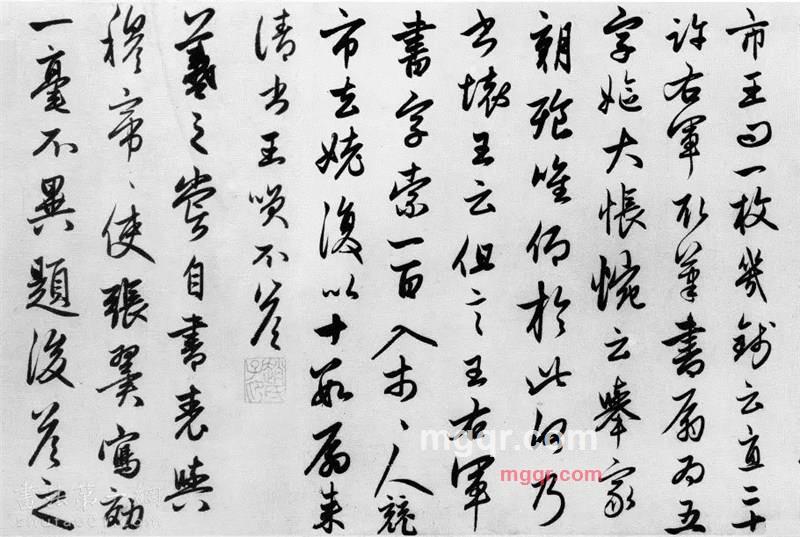 市王問一枚幾錢云直二十
許右軍取筆書扇為五
字嫗大悵惋云舉家
朝飡唯仰於此何乃
書壞王云但言王右軍
書字索一百入市〻人競
市去姥復以十數扇來
請書王笑不答
趙氏子昂
羲之嘗自書表與
穆帝〻使張翼寫效
一毫不異題後答之
mgqr.com
mgqr.com